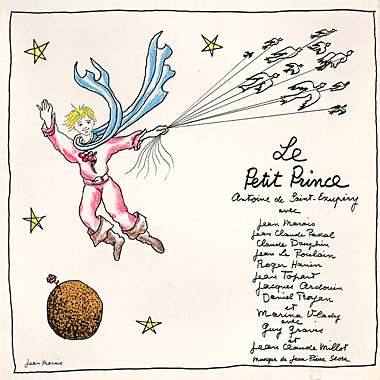 Le
Petit Prince
Antoine de Saint-Exupéry
avec
Jean Marais
Jean Claude Pascal
Claude Dauphin
Jean Le Poulain
Roger Hanin
Jean Topart
Jacques Ardouin
Daniel Royan
et
Marina Vlady
avec
Guy Gravis
et
Jean Claude Millot
musique de Jean-Pierre
Jean Marais